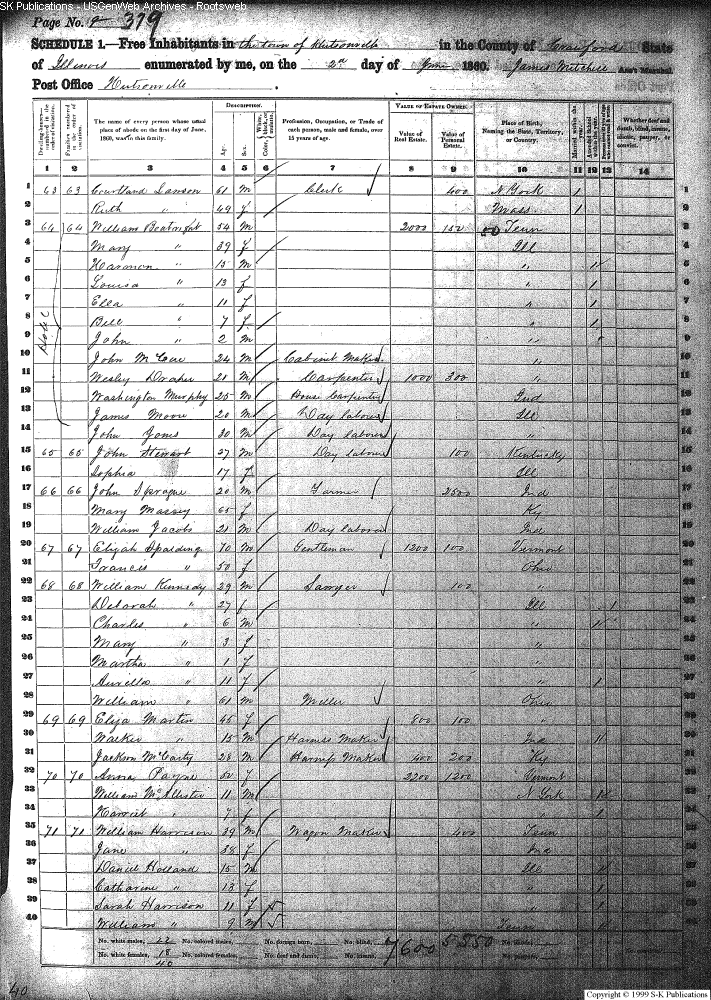 SK Publications - USGenWeb Archives - Rootsweb
Page No. 9 379
SCHEDULE 1.—Free Inhabitants in the town of Hutsonville in the County of Crawford State
of Illinois enumerated by me, on the 2nd day of June 1860. James Mitchell Ass't Marshal
Post Office Hutsonville
Dwelling-houses—numbered in the order of visitation.
Families numbered in the order of visitation.
The name of every person whose usual place of abode on the first day of June, 1860, was in this family.
DESCRIPTION.
Age.
Sex.
Color, White, black, or mulatto.
Profession, Occupation, or Trade of each person, male and female, over 15 years of age.
VALUE OF ESTATE OWNED.
Value of Real Estate.
Value of Personal Estate.
Place of Birth, Naming the State, Territory, or Country.
Married within the year.
Whether deaf and dumb, blind, insane, idiotic, pauper, or convict.
1 2 3 4 5 6 7 8 9 10 11 12 13 14
1 63 63 Courtland Lanson 61 m Clerk 400 N York 1 1
2 Ruth 49 f Mass 1 2
3 64 64 William 54 m 2000 150 Tenn 3
4 Mary " 39 f Ill 4
5 Harmon " 15 m " 1 5
6 Louisa " 13 f " 1 6
7 Ella " 11 f " 1 7
8 Bell " 7 f " 1 8
9 John " 2 m " 9
Hotel
10 John McCue 24 m Cabinet Maker " 10
11 Wesley Draper 28 m Carpenter 1000 300 " 11
12 Washington Murphy 25 m House Carpenter Ind 12
13 James Moore 20 m Day laborer Ill 13
14 John 30 m Day laborer " 14
15 65 65 John Stewart 27 m Day laborer 100 Kentucky 15
16 Sophia 17 f Ill 16
17 66 66 John Sprague 20 m Farmer 2500 Ind 17
18 Mary Massey 65 f Ky 18
19 William Jacobs 21 m Day laborer Ind 19
20 67 67 Elijah Spalding 70 m Gentleman 1200 100 Vermont 20
21 Francis " 50 f Ohio 21
22 68 68 William Kennedy 29 m Sawyer 100 " 22
23 Deborah " 27 f Ill 1 23
24 Charles " 6 m " 24
25 Mary " 3 f " 25
26 Martha " 1 f " 26
27 " 11 f " 1 27
28 William " 61 m Miller Ohio 28
29 69 69 Eliza Martin 45 f 800 100 " 29
30 Walker " 15 m Harness Maker Ind 30
31 Jackson McCarty 28 m Harness Maker 400 200 Ky 31
32 70 70 Anna Payne 50 f 2200 1200 Vermont 32
33 William McAllister 11 m N York 33
34 Harriet " 7 f " 34
35 71 71 William Harrison 39 m Wagon Maker 400 Tenn 35
36 Jane " 38 f Ind 36
37 Daniel Holland 15 m Ill 37
38 Catharine " 13 f " 1 38
39 Sarah Harrison 11 f " 1 39
40 William " 9 m Tenn 40
No. white males, 22 No. colored males, No. foreign born, No. blind, 7600 5550
No. white females, 18 No. colored females, No. deaf and dumb, No. insane,
40
40
Copyright © 1999 S-K Publications